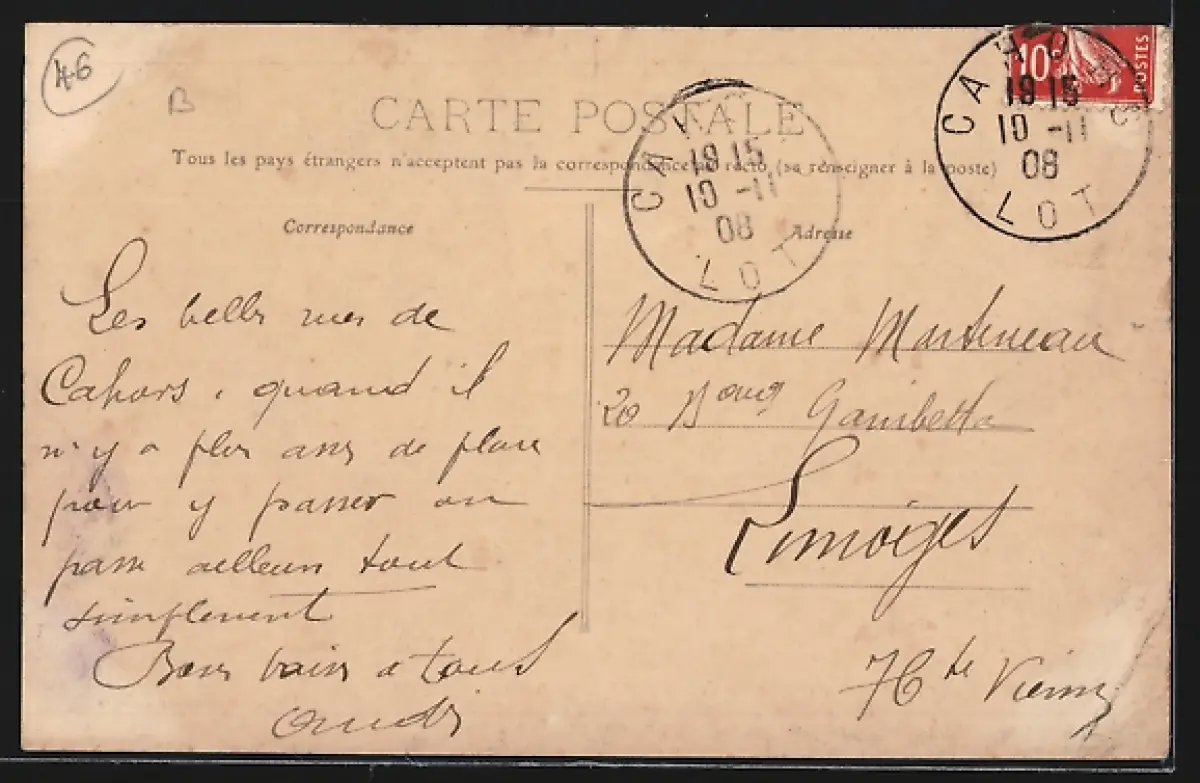 46
B
CARTE POSTALE
Tous les pays étrangers n'acceptent pas la correspondance au recto (se renseigner à la poste)
10c
POSTES
CAHORS
19 15
10 -11
08
LOT
CAHORS
19 15
10 -11
08
LOT
Correspondance
Adresse
Les belles rues de
Cahors, quand il
n'y a plus assez de place
pour y passer on
passe ailleurs tout
simplement
à tous
Madame Martineau
20 Gambetta
Limoges
Hte Vienne